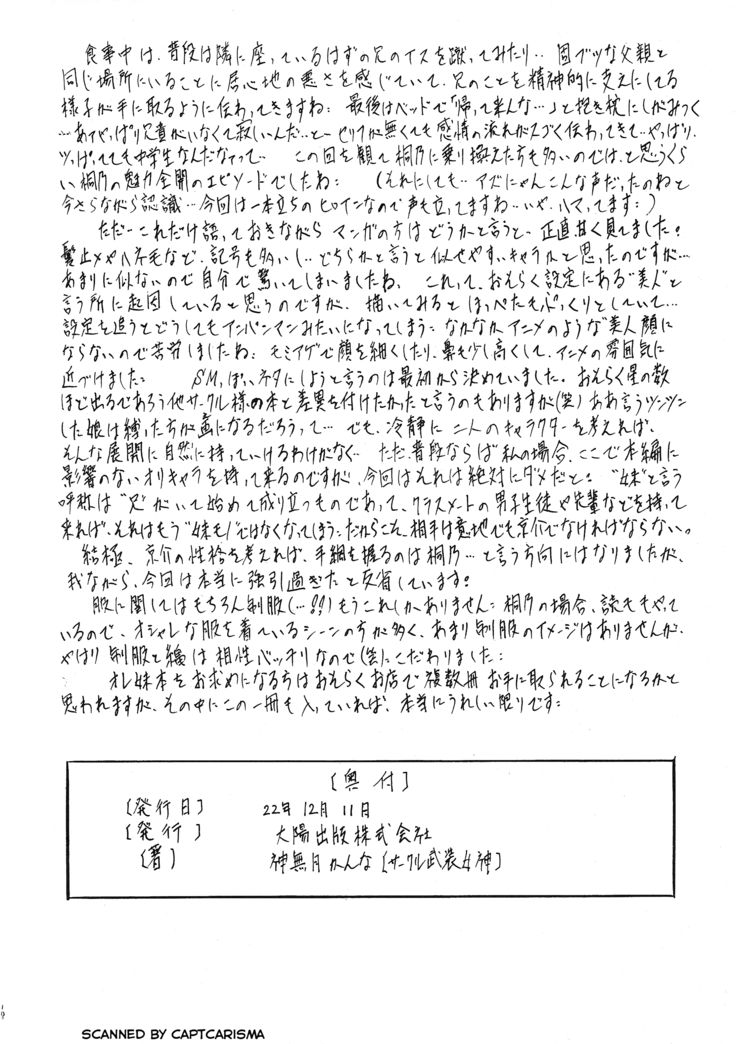 食事中は、普段は隣に座っているはずの兄のイスを蹴ってみたり‥ 固ブツな父親と
同じ場所にいることに居心地の悪さを感じていて、兄のことを精神的に支えにしてる
様子が手に取るように伝わってきますね: 最後はベッドで「帰って来んな…」と抱き枕にしがみつく
…あァやっぱり兄貴がいなくて寂しいんだ…と― セリフが無くても感情の流れがスゴく伝わってきて…やっぱり、
ツッぱってても中学生なんだなァって… この回を観て桐乃に乗り換えた方も多いのでは、と思うくら
い桐乃の魅力全開のエピソードでしたね: (それにしても…アズにゃんこんな声だったのねと
今さらながら認識…今回は一本立ちのヒロインなので声も立ってますね…いや、ハマってます:)
ただ―これだけ語っておきながら マンガの方はどうかと言うと― 正直甘く見てました!
髪止メやハネ毛など、記号も多いし‥どちらかと言うと似せやすいキャラかと思ったのですが…
あまりに似ないので自分で驚いてしまいましたね、 これって、おそらく設定にある"美人"と
言う所に起因していると思うのですが、描いてみるとほっぺたもぷっくりとしていて…
設定を追うとどうしてもアンパンマンみたいになってしまう― なかなかアニメのような"美人顔に
ならないので苦労しましたね: モミアゲで顔を細くしたり、鼻も少し高くして、アニメの雰囲気に
近づけました: SMっぽいネタにしようと言うのは最初から決めていました。おそらく星の数
ほど出るであろう他サークル様の本と差異を付けたかったと言うのもありますが(笑) ああ言うツンツン
した娘は縛った方が画になるだろうって… でも、冷静に二人のキャラクターを考えれば、
そんな展開に自然に持っていけるわけがなく… ただ、普段ならば私の場合、ここで本編に
影響のないオリキャラを持って来るのですが、今回はそれは絶対にダメだと: "妹"と言う
呼称は"兄"がいて始めて成り立つものであって、クラスメートの男子生徒や先輩などを持って
来れば、それはもう"妹モノ"ではなくなってしまう、だからこそ、相手は意地でも京介でなければならない。
結極、京介の性格を考えれば、手綱を握るのは桐乃…と言う方向にはなりましたが、
我ながら、今回は本当に強引過ぎたと反省しています!
服に関してはもちろん制服(…!!)もうこれしかありません: 桐乃の場合、読モもやって
いるので、オシャレな服を着ているシーンの方が多く、あまり制服のイメージはありませんが、
やはり制服と縄は相性バッチリなので(笑)こだわりました:
オレ妹本をお求めになる方はおそらくお店で複数冊お手に取られることになるかと
思われますが、その中にこの一冊も入っていれば、本当にうれしい限りです:
[奥付]
[発行日] 22年12月11日
[発行] 大陽出版株式会社
[著] 神無月かんな[サークル武装女神]
19
SCANNED BY CAPTCARISMA